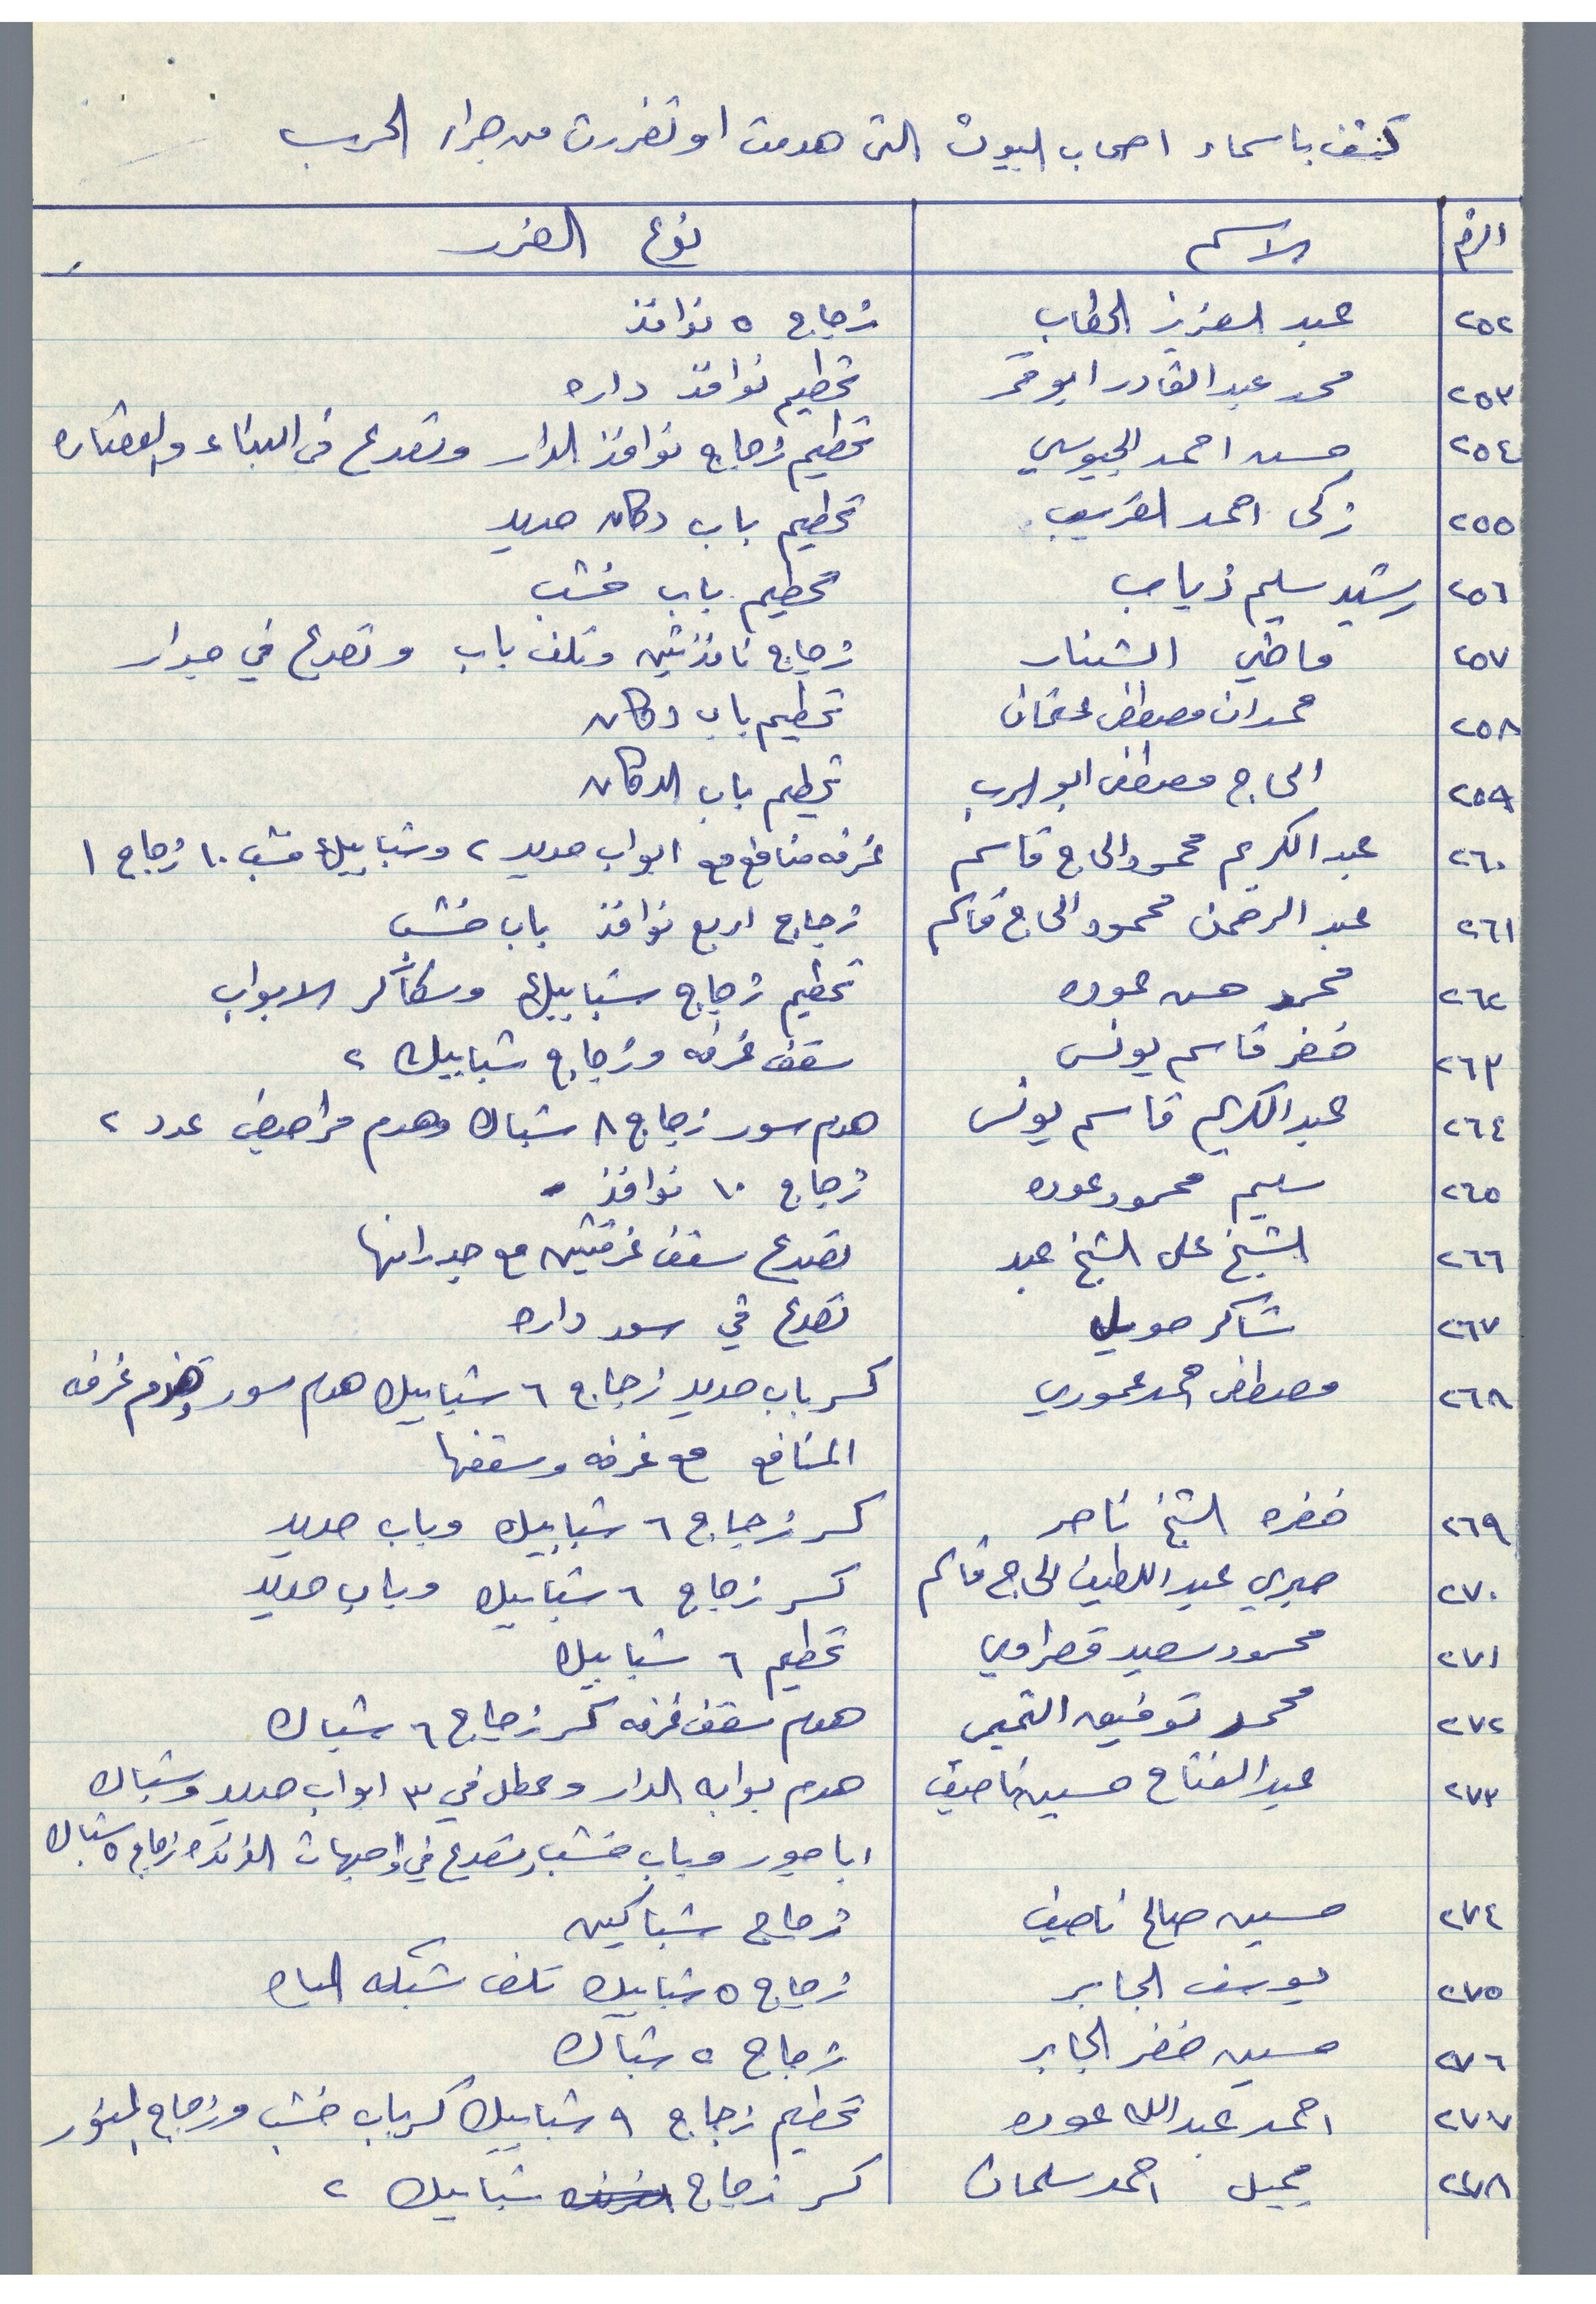 كشف باسماء اصحاب البيوت التي هدمت او تضررت من جراء الحرب
الرقم الاسم نوع الضرر
٢٥٢ عبد العزيز الحطاب زجاج ٥ نوافذ
٢٥٣ محمد عبد القادر ابو قمر تحطيم نوافذ داره
٢٥٤ حسن احمد الجيوسي تحطيم زجاج نوافذ الدار وتصدع في البناء
٢٥٥ زكي احمد الغريب تحطيم باب دكان حديد
٢٥٦ رشيد سليم ذياب تحطيم باب خشب
٢٥٧ ماضي الشنار زجاج نافذتين وتلف باب وتصدع في جدار
٢٥٨ حمدان مصطفى تحطيم باب دكان
٢٥٩ الحاج مصطفى ابو الرب تحطيم باب الدكان
٢٦٠ عبد الكريم محمود الحاج قاسم غرفه منافع مع ابواب حديد ٢ وشبابيك خشب ١٠ زجاج ١
٢٦١ عبد الرحمن محمود الحاج قاسم زجاج اربع نوافذ باب خشب
٢٦٢ محمد حسن عوده تحطيم زجاج شبابيك وسكاكر الابواب
٢٦٣ خضر قاسم يونس سقف غرفه وزجاج شبابيك ٢
٢٦٤ عبد الكريم قاسم يونس هدم سور زجاج ٨ شباك وهدم مراحيض عدد ٢
٢٦٥ سليم محمود عوده زجاج ١٠ نوافذ
٢٦٦ الشيخ علي الشيخ عبد تصدع سقف غرفتين مع جدرانها
٢٦٧ شاكر صويلح تصدع في سور داره
٢٦٨ مصطفى احمد عموري كسر باب حديد زجاج ٦ شبابيك هدم سور وهدم غرفه
المنافع مع غرفه وسقفها
٢٦٩ خضره الشيخ ناصر كسر زجاج ٦ شبابيك وباب حديد
٢٧٠ صبري عبد اللطيف الحاج قاسم كسر زجاج ٦ شبابيك وباب حديد
٢٧١ محمود سعيد قصراوي تحطيم ٦ شبابيك
٢٧٢ محمد توفيق التميمي هدم سقف غرفه كسر زجاج ٦ شباك
٢٧٣ عبد الفتاح حسين ناصيف هدم بوابه الدار وعطل في ٣ ابواب حديد وشباك
اباجور وباب خشب وتصدع في واجهات زجاج ٥ شباك
٢٧٤ حسين صالح ناصيف زجاج شباكين
٢٧٥ يوسف الجابر زجاج ٥ شبابيك تلف شبكه المياه
٢٧٦ حسين خضر الجابر زجاج ٥ شباك
٢٧٧ احمد عبد الله عوده تحطيم زجاج ٩ شبابيك كسر باب خشب وزجاج المنور
٢٧٨ جميل احمد سلمان كسر زجاج شبابيك ٢